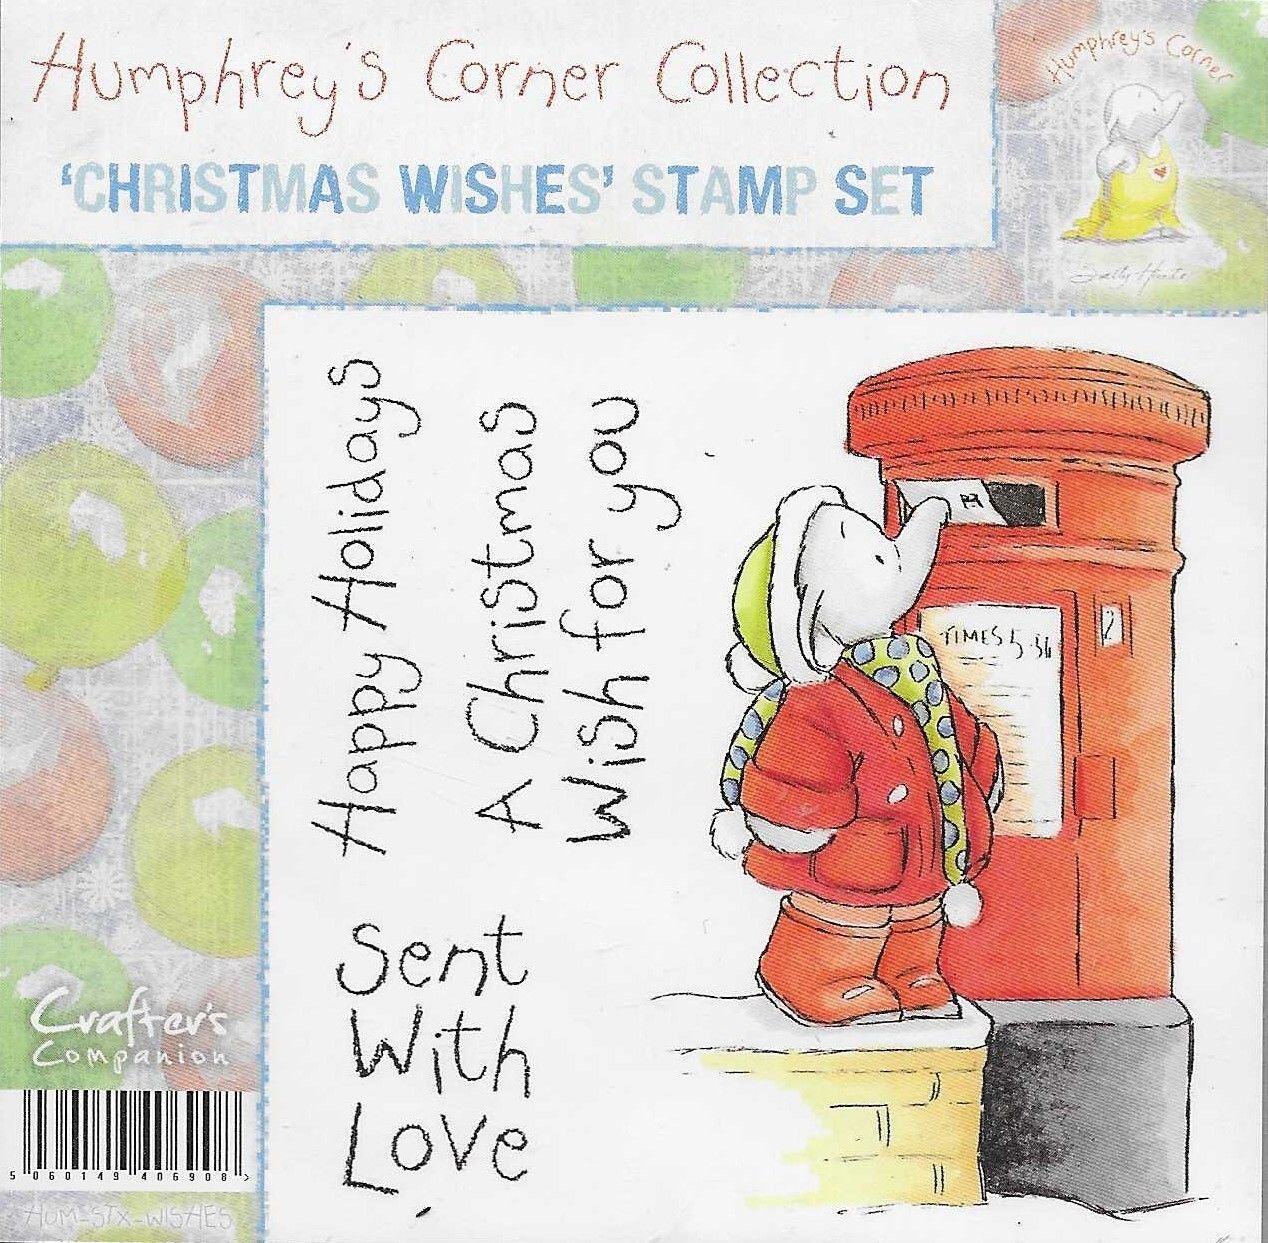 Humphrey's Corner Collection
'CHRISTMAS WISHES' STAMP SET
Humphrey's Corner
Happy Holidays
A Christmas
Wish for you
Sent
With
Love
TIMES 5.36
2
Crafter's
Companion
5 060149 406908 >
HUM-STX-WISHES